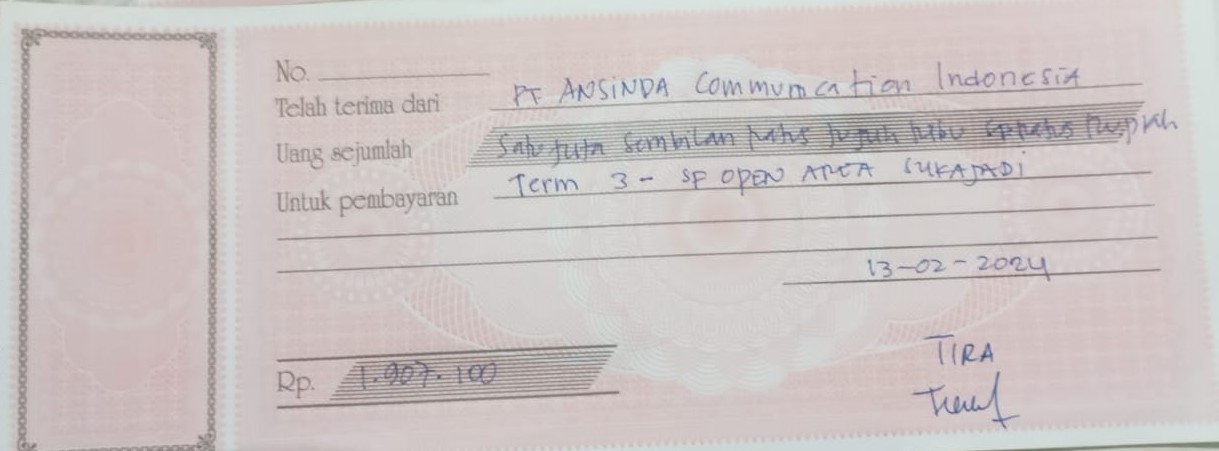 No.
Telah terima dari PT ANSINDA Communication Indonesia
Uang sejumlah Satu juta Sembilan ratus tujuh ribu seratus Rupiah
Untuk pembayaran Term 3 - SP OPEN AREA SUKAJADI
13-02-2024
Rp. 1.907.100
TIRA